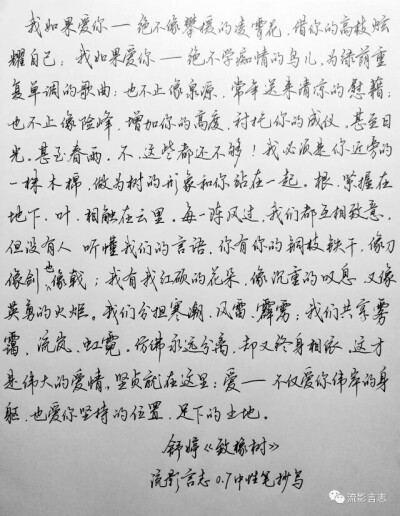 我如果爱你——绝不像攀援的凌霄花，借你的高枝炫
耀自己；我如果爱你——绝不学痴情的鸟儿，为绿荫重
复单调的歌曲；也不止像泉源，常年送来清凉的慰藉；
也不止像险峰，增加你的高度，衬托你的威仪。甚至日
光。甚至春雨。不，这些都还不够！我必须是你近旁的
一株木棉，做为树的形象和你站在一起。根，紧握在
地下，叶，相触在云里。每一阵风过，我们都互相致意，
但没有人 听懂我们的言语。你有你的铜枝铁干，像刀
像剑也像戟；我有我红硕的花朵，像沉重的叹息 又像
英勇的火炬。我们分担寒潮、风雷、霹雳；我们共享雾
霭、流岚、虹霓。仿佛永远分离，却又终身相依。这才
是伟大的爱情，坚贞就在这里：爱——不仅爱你伟岸的身
躯，也爱你坚持的位置，足下的土地。
舒婷《致橡树》
流影言志0.7中性笔抄写
流影言志